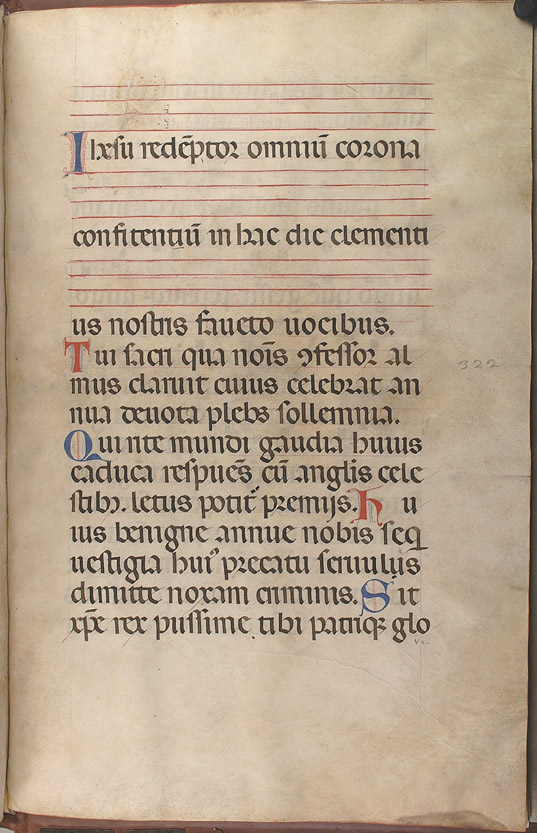 Ihesu redēptor omniū corona
confitentiū in hac die clementi
us nostris faueto uocibus.
Tui sacri qua noīs ꝯfessor al
mus claruit cuius celebrat an
nua deuota plebs sollemnia.
Qui rite mundi gaudia huius
caduca respuēs cū anglis cele
stibꝫ. letus potit᷑ premijs. Hu
ius benigne annue nobis seq
uestigia huiꝰ precatu seruulus
dimitte noxam criminis. Sit
xp̄e rex piissime tibi patriqꝫ glo
322